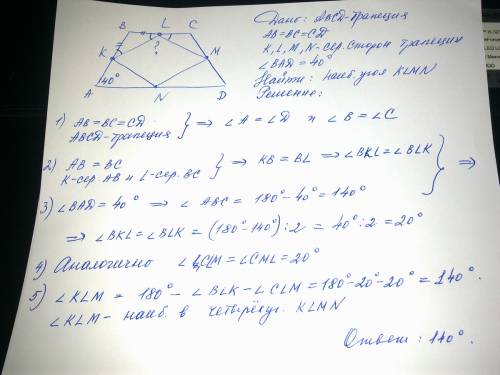 B L C
K ? M
40°
A N D
Дано: ABCD-трапеция
AB=BC=CD
K, L, M, N-сер. сторон трапеции
∠BAD = 40°
Найти: наиб. угол KLMN
Решение:
1) AB=BC=CD
ABCD-трапеция } ⇒ ∠A=∠D и ∠B=∠C
2) AB = BC
K-сер. AB и L-сер. BC } ⇒ KB=BL ⇒ ∠BKL=∠BLK
3) ∠BAD = 40° ⇒ ∠ABC = 180°-40°=140° } ⇒
⇒ ∠BKL=∠BLK = (180°-140°):2 = 40°:2 = 20°
4) Аналогично ∠CLM=∠CML=20°
5) ∠KLM = 180° - ∠BLK-∠CLM=180°-20°-20°=140°.
∠KLM- наиб. в четырёхуг. KLMN
Ответ: 140°.